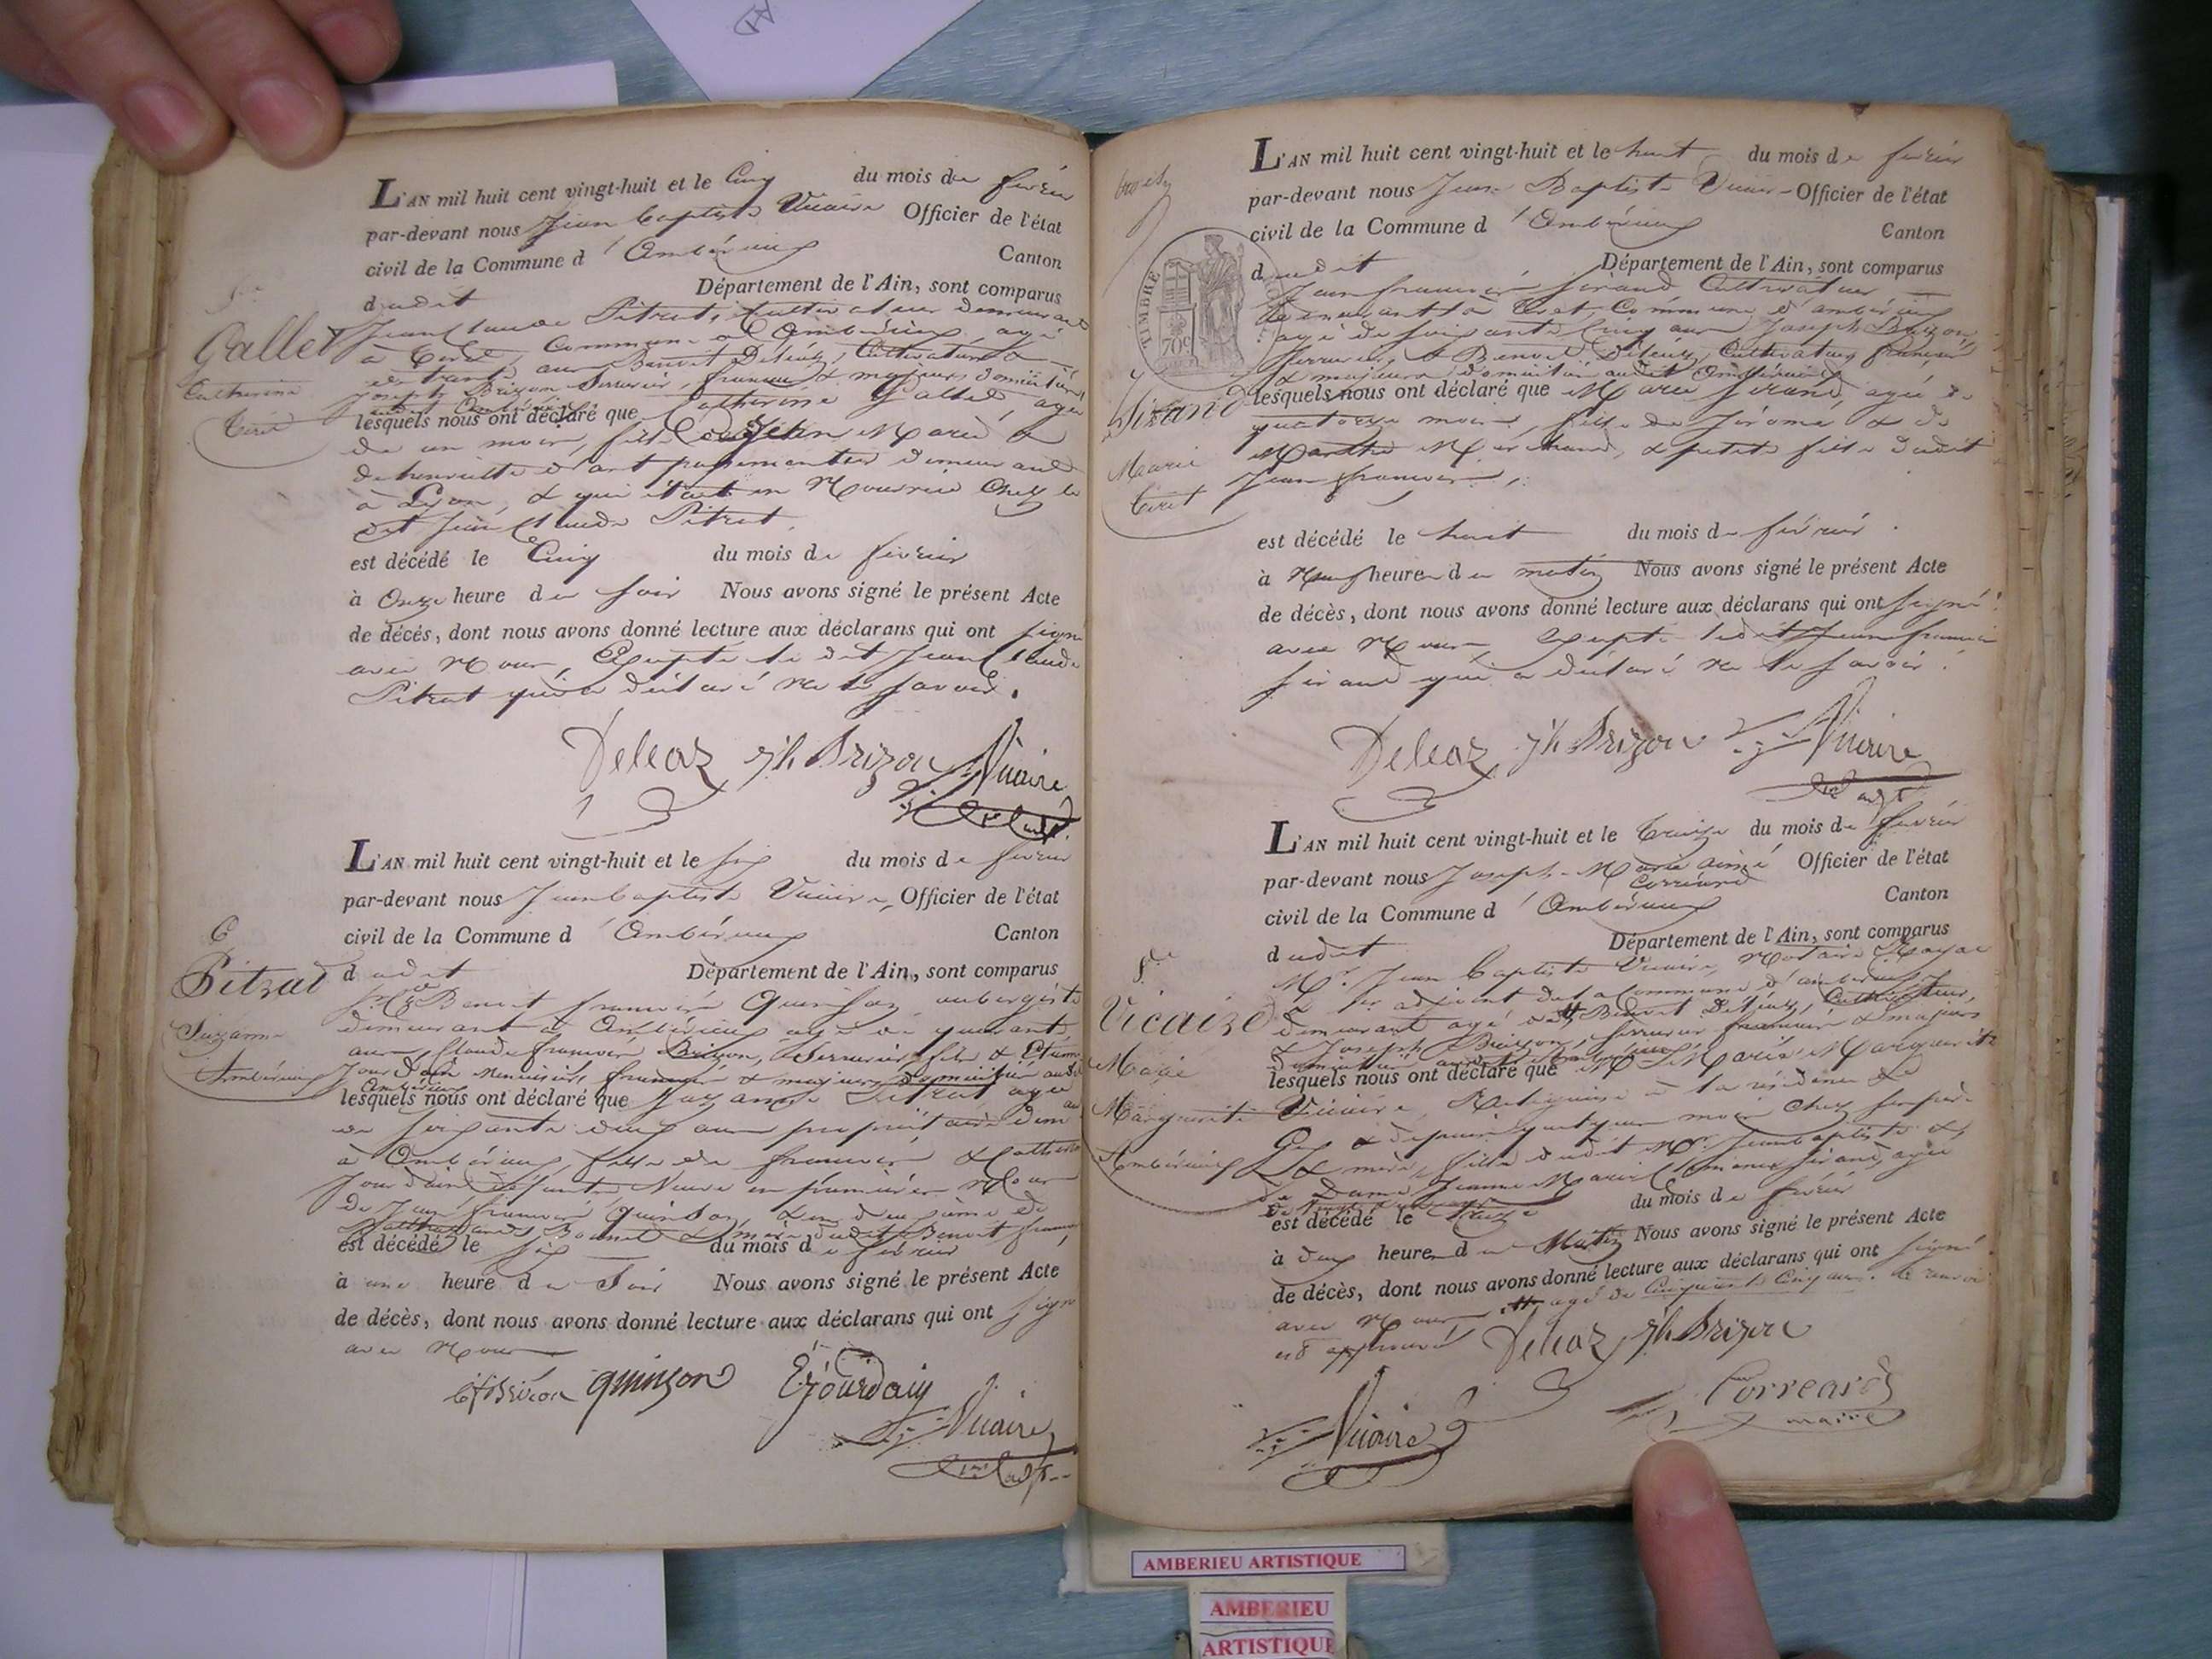 L'AN mil huit cent vingt-huit et le Cinq du mois de février
par-devant nous Jean Baptiste Vicaire Officier de l'état
civil de la Commune d'Ambérieux Canton
dudit Département de l'Ain, sont comparus
Gallet Jean Claude Pitrat, Cultivateur demeurant
à Tiret, Commune d'Ambérieux, agé
de trente ans Benoit Deléaz, Cultivateur &
Catherine Joseph Brizon Serrurier, français & majeurs, domiciliés
Tiret lesquels nous ont déclaré que Catherine Gallet, agée
de un mois, fille de Jean Marie &
demeurant
à Lyon, & qui était en Nourrice Chez le
dit Jean Claude Pitrat.
est décédé le Cinq du mois de février
à Onze heure du soir Nous avons signé le présent Acte
de décés, dont nous avons donné lecture aux déclarans qui ont signé
avec Nous, Excepté le dit Jean Claude
Pitrat qui a déclaré ne le savoir.
Deleaz jh Brizon Vicaire
L'AN mil huit cent vingt-huit et le six du mois de février
par-devant nous Jean baptiste Vicaire, Officier de l'état
civil de la Commune d'Ambérieux Canton
6
Pitrat dudit Département de l'Ain, sont comparus
Benoit françois Quinson aubergiste
Suzanne demeurant à Ambérieux agé de quarante
ans, Claude françois Brizon, Serrurier &
Ambérieux Jourdain Menuisier, français & majeurs domiciliés audit
Ambérieux
lesquels nous ont déclaré que Suzanne Pitrat agée
de soixante deux ans propriétaire
à Ambérieux, fille de françois &
Jourdain Veuve en premières
de Jean françois Quinson, de
Bonnet & mère dudit Benoit
est décédé le six du mois de février
à une heure du Soir Nous avons signé le présent Acte
de décès, dont nous avons donné lecture aux déclarans qui ont signé
avec Nous
cf Brizon quinson E jourdain
Vicaire
L'AN mil huit cent vingt-huit et le huit du mois de février
par-devant nous Jean Baptiste Vicaire Officier de l'état
civil de la Commune d'Ambérieux Canton
dudit Département de l'Ain, sont comparus
TIMBRE
70c
Jean françois Sirand Cultivateur
demeurant à Tiret, Commune d'ambérieux
agé de soixante cinq ans Joseph Brizon,
serrurier, & Benoit Deléaz, Cultivateur français
& majeurs domiciliés audit Ambérieux
Sirand lesquels nous ont déclaré que Marie Sirand, agée de
quatorze mois, fille de Jérome & de
Marie Marthe Marchand, & petite fille dudit
Tiret Jean françois,
est décédé le huit du mois de février.
à Neuf heure du matin Nous avons signé le présent Acte
de décès, dont nous avons donné lecture aux déclarans qui ont signé
avec Nous, Excepté ledit Jean françois
Sirand qui a déclaré ne le savoir.
Deleaz jh Brizon Vicaire
L'AN mil huit cent vingt-huit et le treize du mois de février
par-devant nous Joseph-Marie aimé Officier de l'état
Corréard
civil de la Commune d'Ambérieux Canton
dudit Département de l'Ain, sont comparus
Mr. Jean baptiste Vicaire, Notaire Royal
& 1er adjoint de la Commune d'ambérieux y
Vicaire demeurant agé Benoit Deléaz, Cultivateur,
& Joseph Brizon, serrurier français & majeurs
Marie lesquels nous ont déclaré que Marie Marguerite
Marguerite Vicaire, Religieuse à la résidence de
Gex & depuis quelques mois chez ses père
Ambérieux & mère, fille dudit Mr. Jean baptiste &
de Dame Jeanne Marie Sirand, agée
est décédé le treize du mois de février
à deux heure du Matin Nous avons signé le présent Acte
de décès, dont nous avons donné lecture aux déclarans qui ont signé
avec Nous agé de Cinquante Cinq ans. le renvoi
est approuvé Deleaz jh Brizon
Vicaire Correard
maire
AMBERIEU ARTISTIQUE
AMBERIEU
ARTISTIQUE